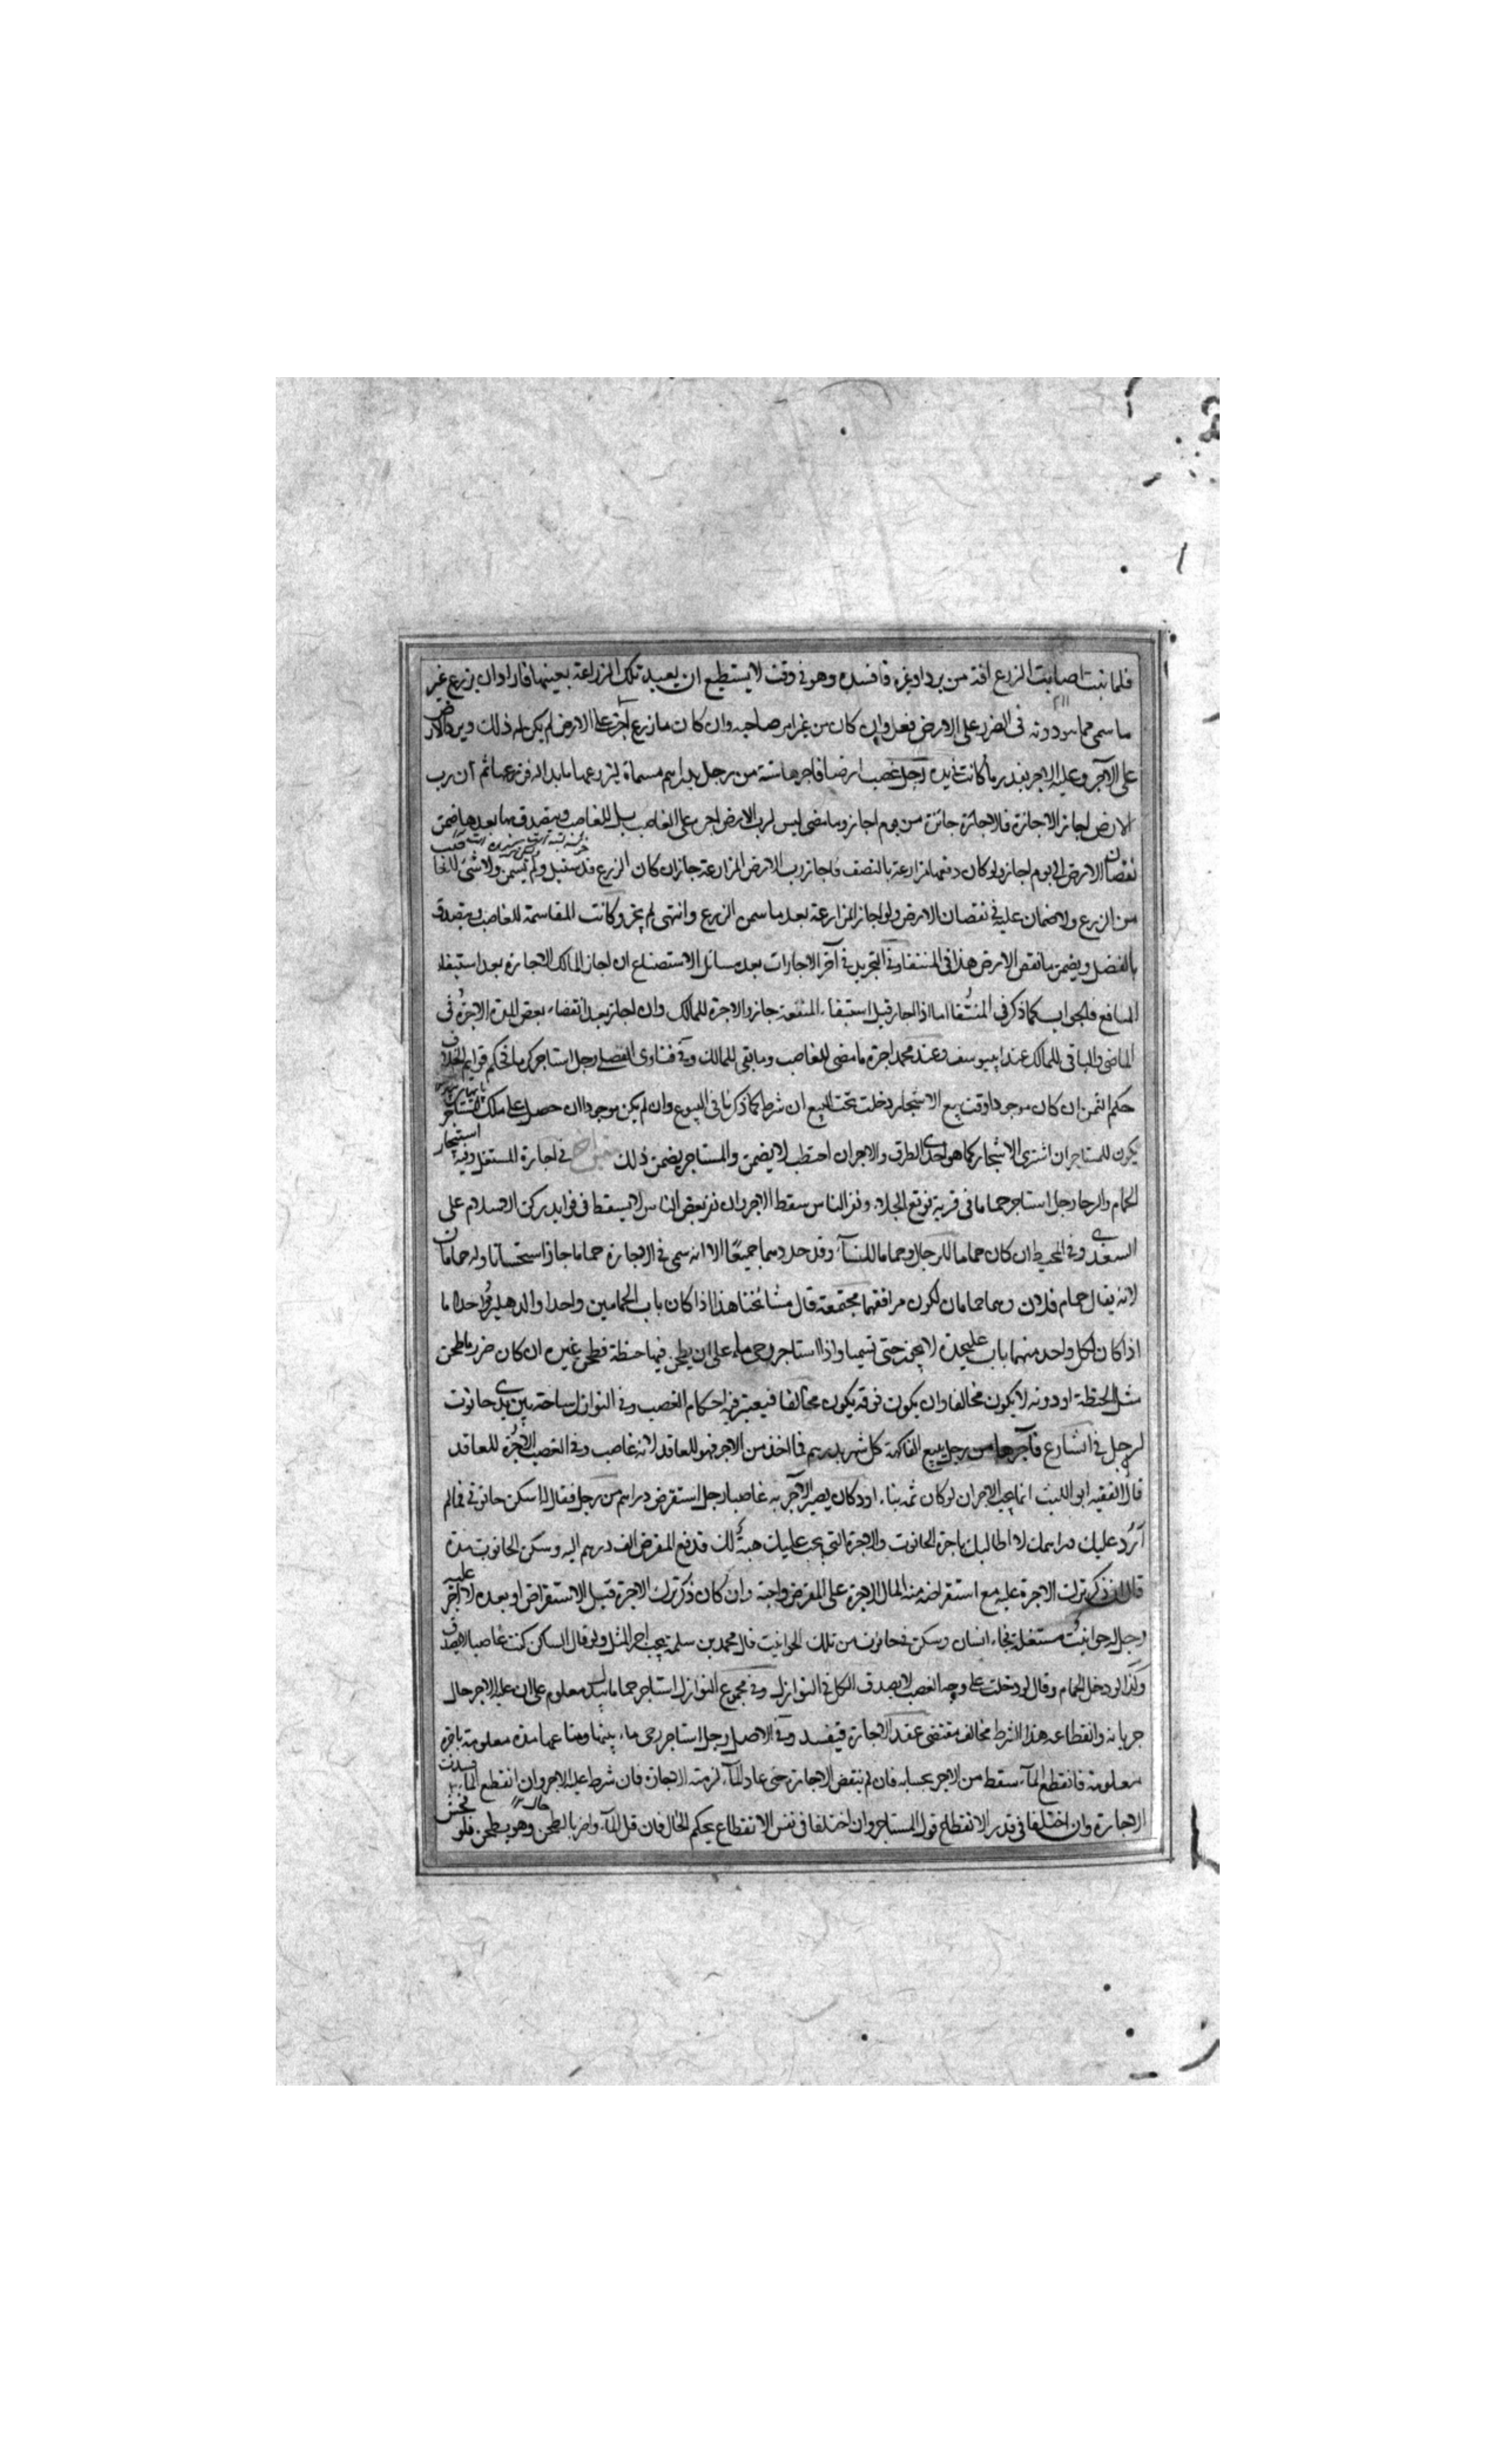 فلما نبت اصابت الزرع افة من برد او غيره فافسده وهو في وقت لا يستطيع ان يعيد تلك الزراعة بعينها فاراد ان يزرع غير
ما سمي مما هو دونه في الضرر على الارض فعل وان كان من غير امر صاحبه وان كان ما زرع اضر على الارض لم يكن له ذلك ويرد الارض
على الآجر وعليه الاجر بقدر ما كانت في يده رجل غصب ارضا فاجرها سنة من رجل بدراهم مسماة ليزرعها ما بدا له فزرعها ثم ان رب
الارض اجاز الاجازة فالاجازة جائزة من يوم اجاز وما مضى ليس لرب الارض اجر على الغاصب بل للغاصب ويتصدق بها بعدها ضمن
نقصان الارض الى يوم اجاز ولو كان دفعها مزارعة بالنصف فاجاز رب الارض المزارعة جاز ان كان الزرع قد سنبل ولم يسمن ولا شئ للغا
من الزرع ولا ضمان عليه في نقصان الارض ولو اجاز المزارعة بعد ما سمن الزرع وانتهى لم يجز وكانت المقاسمة للغاصب ويتصدق
بالفضل ويضمن ما نقص الارض هذا في المنتقا وفي التجريد في آخر الاجارات بعد مسائل الاستصناع ان اجاز المالك الاجارة بعد استيفاء
المنافع فالجواب كما ذكر في المنتقا اما اذا اجاز قبل استيفاء المنفعة جاز والاجرة للمالك وان اجاز بعد انقضاء بعض المدة الاجرة في
الماضي والباقي للمالك عند ابي يوسف وعند محمد اجرة ما مضى للغاصب وما بقي للمالك وفي فتاوى الفضلي رجل استاجر كرما فحكم قوايم الخلاف
حكم الثمن ان كان موجودا وقت بيع الاشجار دخلت تحت البيع ان شرط كما ذكرنا في البيوع وان لم يكن موجودا ان حصل على ملك المستاجر
يكون للمستاجر ان اشترى الاشجار كما هو احدى الطرق والاجر ان احتطب لا يضمن والمستاجر يضمن ذلك في اجارة المستغل وفيه استيجار
الحمام والرحا رجل استاجر حماما في قرية فوقع الجلاء ونفر الناس سقط الاجر وان نفر بعض الناس لا يسقط في فوايد ركن الاسلام على
السغدي وفي المحيط ان كان حماما للرجال وحماما للنساء وقد حددهما جميعا الا انه سمى في الاجارة حماما جاز استحسانا وله حمامان
لانه يقال حمام فلان وهما حمامان لكون مرافقهما مجتمعة قال مشائخنا هذا اذا كان باب الحمامين واحدا والدهليز واحدا اما
اذا كان لكل واحد منهما باب عليحدة لا يجوز حتى تسميا واذا استاجر رحى ماء على ان يطحن فيها حنطة فطحن غيره ان كان ضرر ما طحن
مثل الحنطة او دونه لا يكون مخالفا وان يكون فوقه يكون مخالفا فيعتبر فيه احكام الغصب وفي النوازل ساحة بين يدي حانوت
لرجل في الشارع فآجرها من رجل يبيع الفاكهة كل شهر بدرهم فما اخذ من الاجر فهو للعاقد لانه غاصب وفي الغصب الاجرة للعاقد
قال الفقيه ابو الليث انما يجب الاجر ان لو كان ثمه بناء او دكان يصير الآجر به غاصبا رجل استقرض دراهم من رجل فقال له اسكن حانوتي فما لم
أرد عليك دراهمك لا اطالبك باجرة الحانوت والاجرة التي يجب عليك هبة لك فدفع المقرض الف درهم اليه وسكن الحانوت مدة
قال ان ذكر ترك الاجرة عليه مع استقراضه منه المال الاجرة على المقرض واجبة وان كان ذكر ترك الاجرة قبل الاستقراض او بعده لا اجر عليه
رجل له حوانيت مستغلة فجاء انسان وسكن في حانوت من تلك الحوانيت قال محمد بن سلمة يجب اجر المثل ولو قال الساكن كنت غاصبا لا يصدق
وكذا لو دخل الحمام وقال لو دخلت على وجه الغصب لا يصدق الكل في النوازل وفي مجموع النوازل استاجر حماما ببدل معلوم على ان عليه الاجر حال
جريانه وانقطاعه هذا الشرط مخالف مقتضى عقد الاجارة فيفسد وفي الاصل رجل استاجر رحى ماء بيتها ومتاعها مدة معلومة باجرة
معلومة فانقطع الماء سقط من الاجر بحسابه فان لم ينقض الاجارة حتى عاد الماء لزمته الاجارة فان شرط عليه الاجر وان انقطع الماء فسدت
الاجارة وان اختلفا في قدر الانقطاع قول المستاجر وان اختلفا في نفس الانقطاع يحكم الحال فان قل الماء واضر بالطحن وهو يطحن فلو فحش